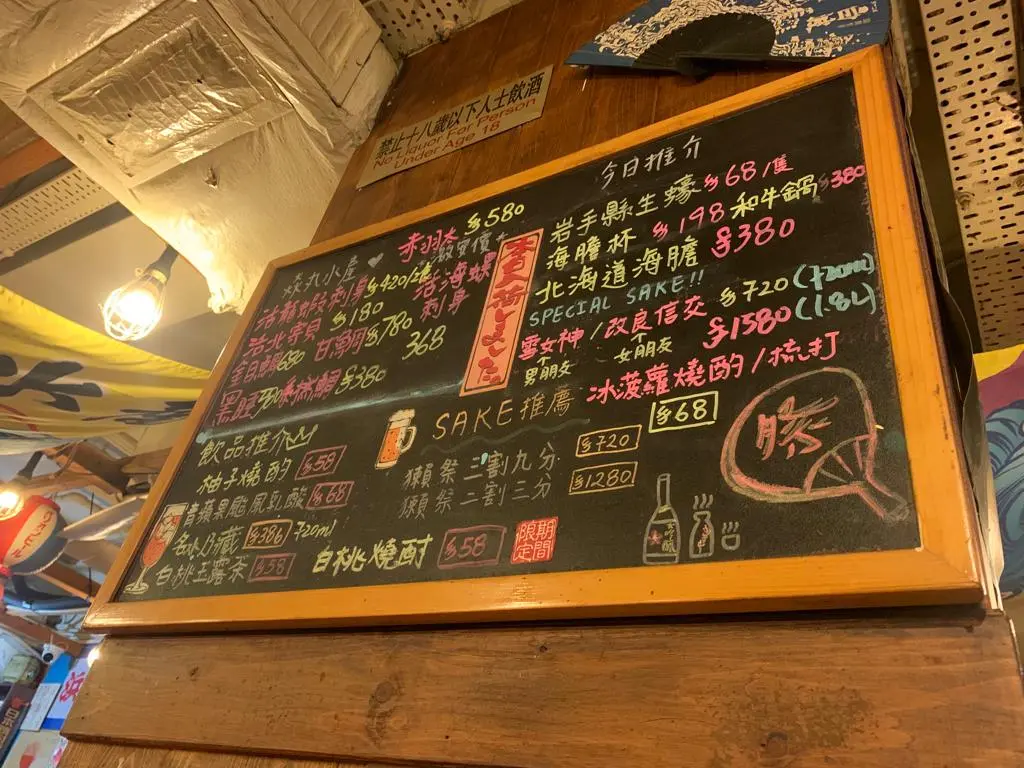 禁止十八歲以下人士飲酒
No Liquor For Person
Under Age 18
今日推介
岩手縣生蠔 $68/隻
海膽杯 $198 和牛鍋 $380
北海道海膽 $380
SPECIAL SAKE!!
雪女神/改良信交 $720 (720ml)
男朋友 女朋友 $1580 (1.8L)
冰菠蘿燒酌/梳打
$68
$580
丸小屋
刺身 $420
活海螺
刺身
活北寺貝 $180
金目鯛 680 $780
368
$380
SAKE推薦
獺祭 三割九分 $720
獺祭 二割三分 $1280
飲品推介
柚子燒酌 $58
青蘋果颱風乳酸 $68
$386 720ml
白桃玉露茶 $58
白桃燒酎 $58
期間
限定
吟釀
勝